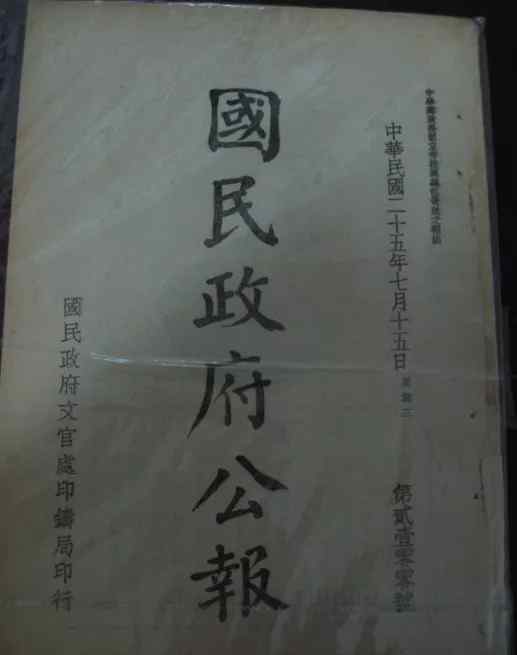 中華郵政特准掛號認為新聞紙類
中華民國二十五年七月十五日 星期三
第貳壹零零號
國民政府公報
國民政府文官處印鑄局印行